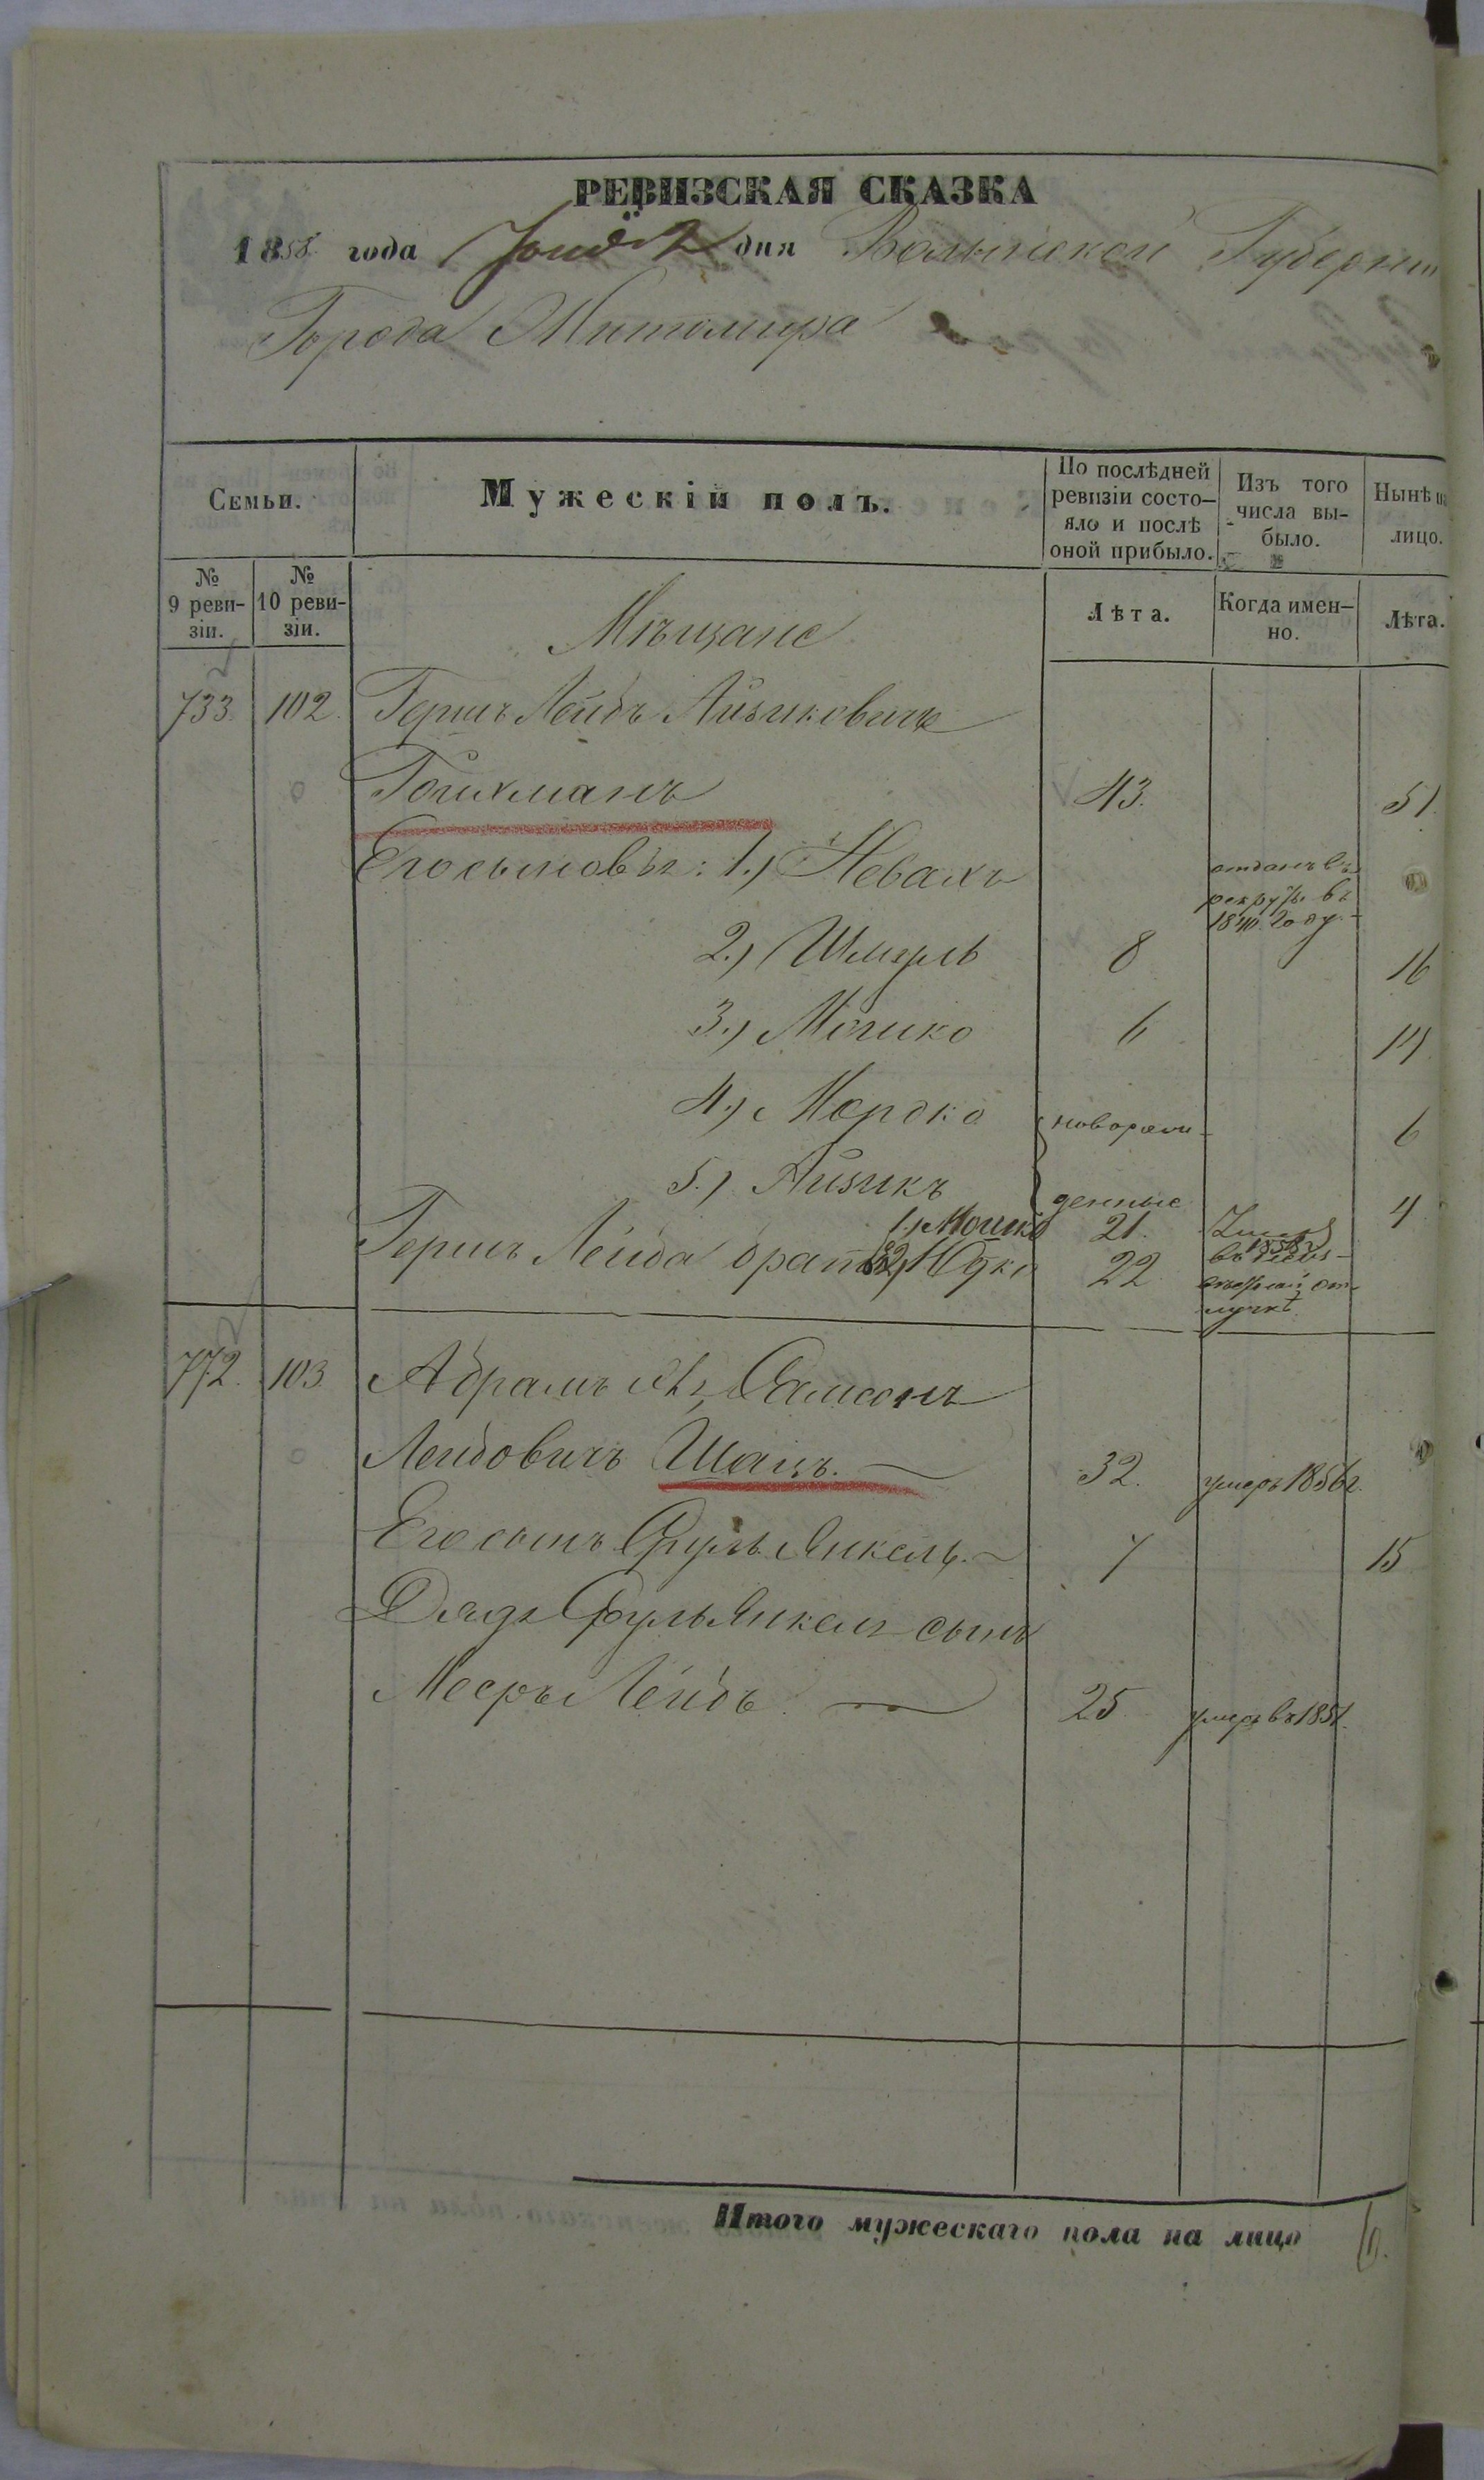 РЕВИЗСКАЯ СКАЗКА
1858 года дня Волынской Губерніи
Города Житомира
Семьи.
Мужескій полъ.
По послѣдней ревизіи состо-
яло и послѣ
оной прибыло.
Изъ того
числа вы-
было.
Нынѣ на
лицо.
№
9 реви-
зіи.
№
10 реви-
зіи.
Лѣта.
Когда имен-
но.
Лѣта.
Мѣщане
733. 102. Гершъ Лейбъ Айзиковичъ
Гойхманъ 43. 51.
Его сыновья: 1.) Невахъ отданъ въ
рекруты въ
1840 году.
2.) Шмуль 8 16
3.) Мошко 6 14
4.) Мордко новорож- 6
5.) Айзикъ денные 4
1.) Мошко 21.
Гершъ Лейба братья 2) Юдко 22
въ
от-
лучкѣ.
772. 103. Абрамъ Самсонъ
Лейбовичъ Шацъ. 32. умеръ 1856 г.
Его сынъ Сруль Янкель. 7 15
Дядя Сруль Янкеля сынъ
Мееръ Лейбъ 25 умеръ въ 1851.
Итого мужескаго пола на лицо 6.